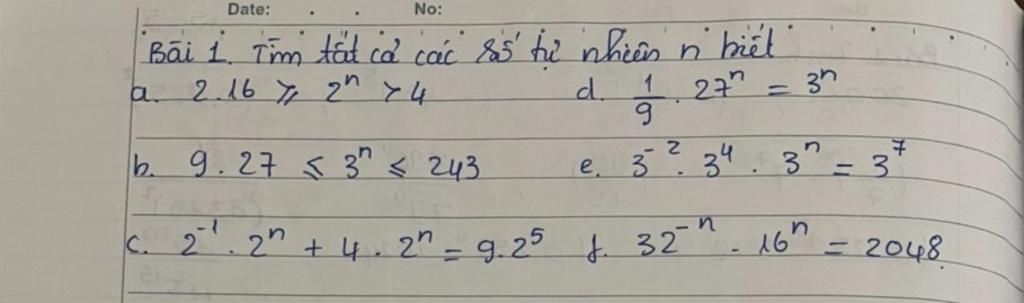 Date: . . No:
Bài 1. Tìm tất cả các số tự nhiên n biết
a. 2.16 ⩾ 2ⁿ > 4 d. 1/9 . 27ⁿ = 3ⁿ
b. 9.27 ⩽ 3ⁿ ⩽ 243 e. 3⁻² . 3⁴ . 3ⁿ = 3⁷
c. 2⁻¹ . 2ⁿ + 4 . 2ⁿ = 9.2⁵ f. 32⁻ⁿ . 16ⁿ = 2048